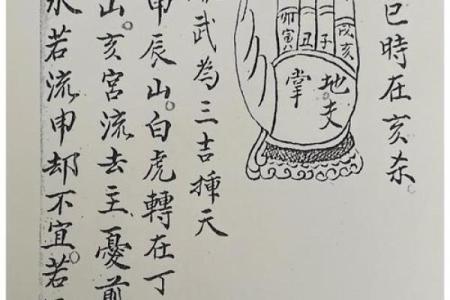 巳時在亥杀。
戌亥
子
丑
卯寅
地夫
掌
武為三吉揷天
申辰山。白虎轉在丁
山。亥宮流去主憂前
水若流申却不宜。若